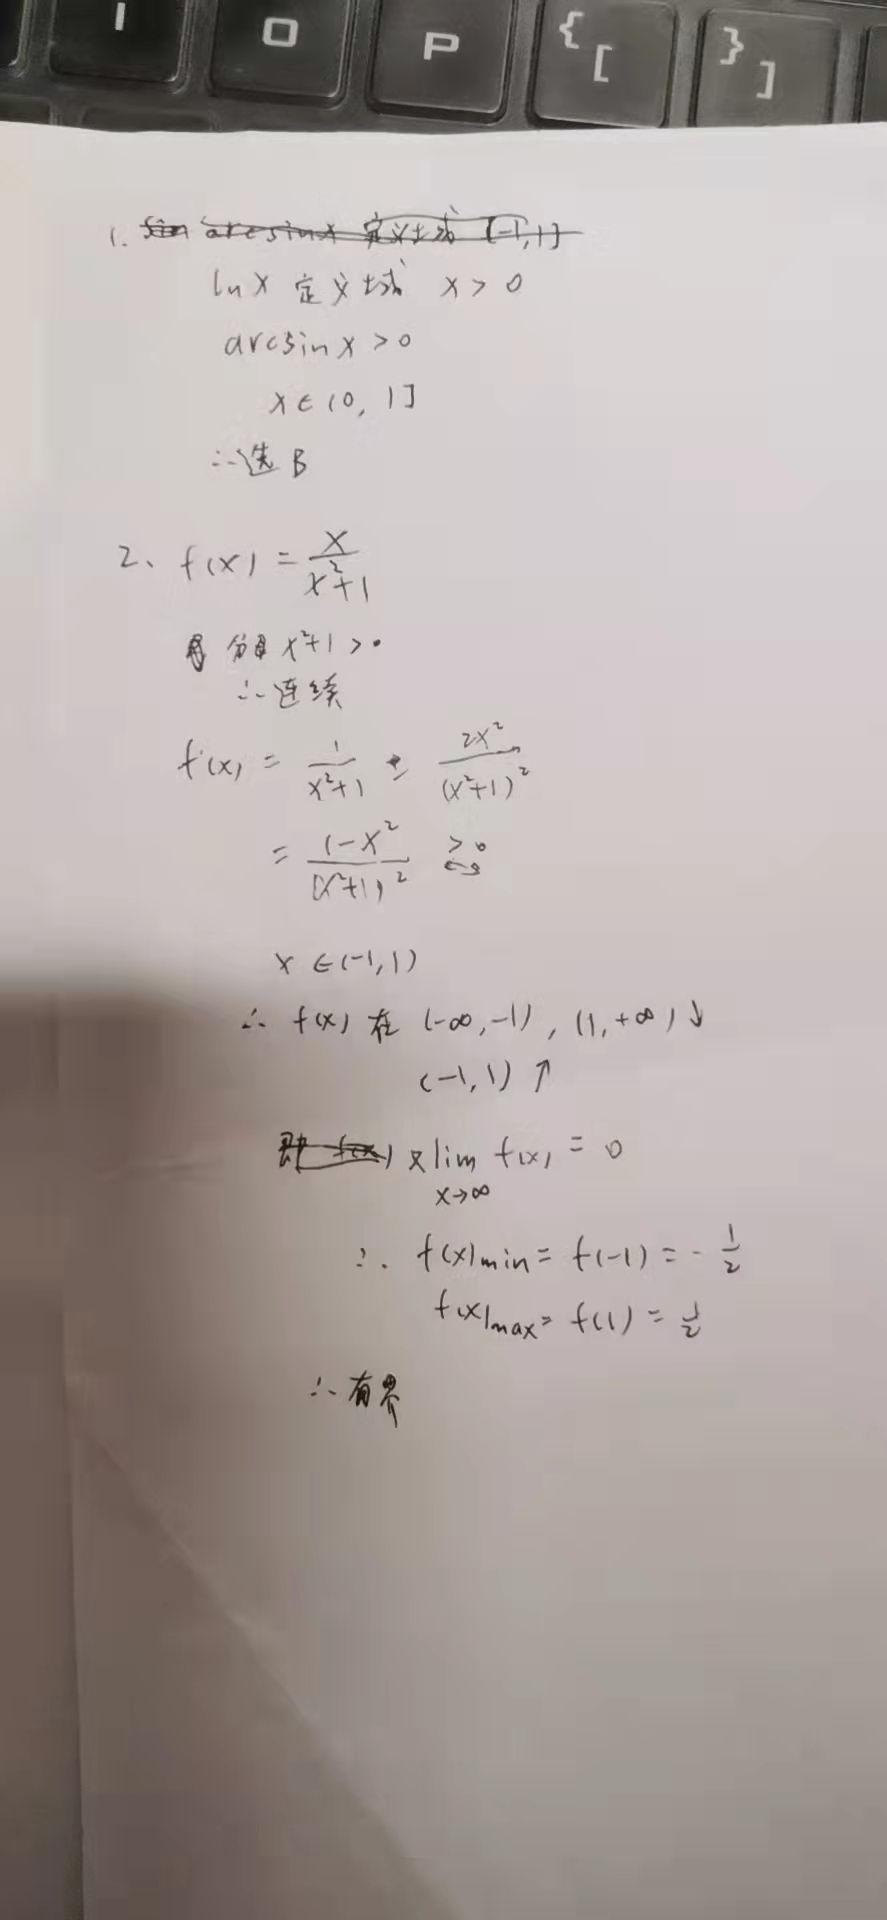 I O P { [ } ]
1. sin arcsinx 定义域 [-1,1]
lnx 定义域 x>0
arcsinx>0
x∈(0,1]
∴选B
2、f(x)=x/(x²+1)
分母x²+1>0
∴连续
f'(x)=1/(x²+1) - 2x²/(x²+1)²
=(1-x²)/(x²+1)² >0
x∈(-1,1)
∴ f(x)在(-∞,-1),(1,+∞)↓
(-1,1)↑
即 f(x) 又lim f(x)=0
x→∞
∴ f(x)min=f(-1)=-1/2
f(x)max=f(1)=1/2
∴有界